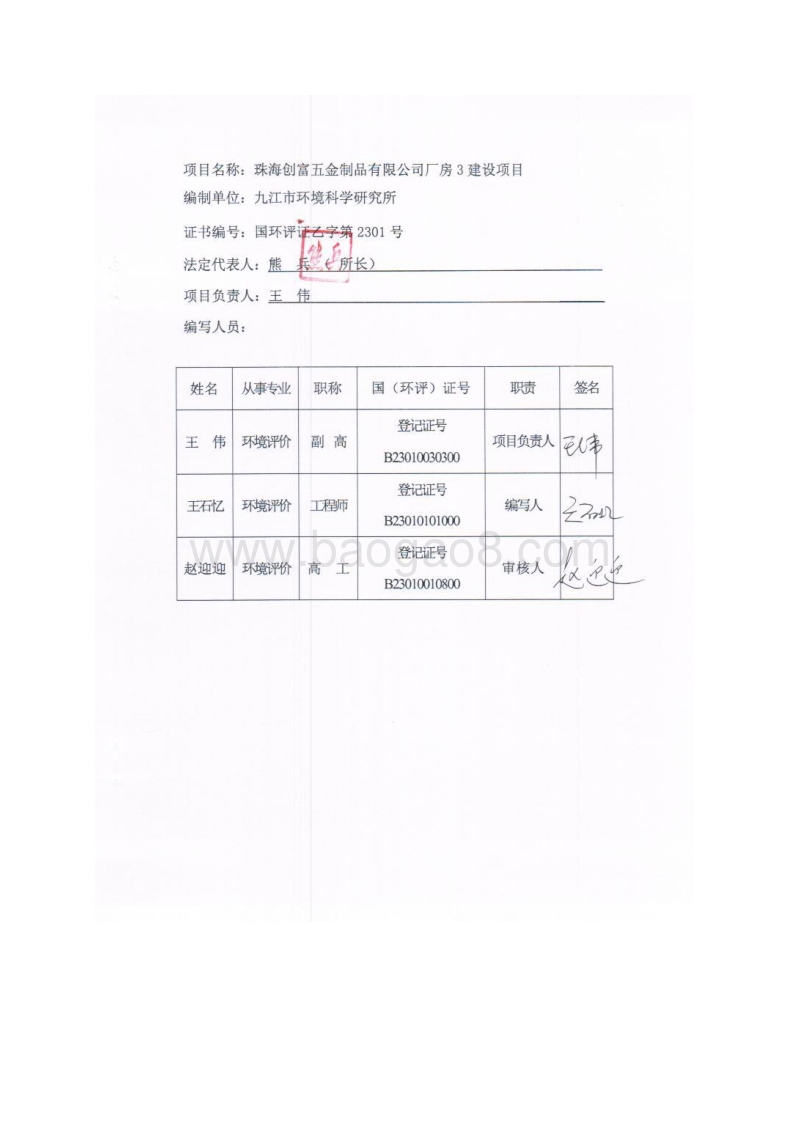 项目名称：珠海创富五金制品有限公司厂房 3 建设项目
编制单位：九江市环境科学研究所
证书编号：国环评证乙字第 2301 号
法定代表人：熊 兵（所长）
熊兵
项目负责人：王 伟
编写人员：
姓名 从事专业 职称 国（环评）证号 职责 签名
王 伟 环境评价 副 高 登记证号 B23010030300 项目负责人 王伟
王石忆 环境评价 工程师 登记证号 B23010101000 编写人 王石忆
赵迎迎 环境评价 高 工 登记证号 B23010010800 审核人 赵迎迎
www.baogao8.com